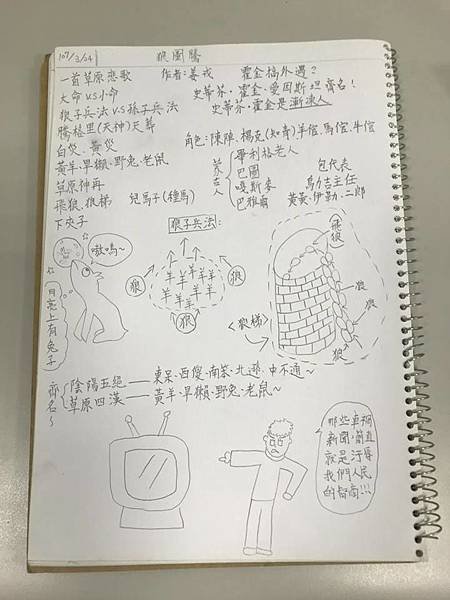 107/3/24
狼圖騰
一首草原悲歌
作者:姜戎
霍金搞外遇?
大命v.s小命
史蒂芬·霍金·愛因斯坦齊名!
狼子兵法v.s孫子兵法
史蒂芬·霍金是漸凍人
騰格里(天神)天葬
角色:陳陣、楊克(知青)羊倌、馬倌、牛倌
白災、黃災
黃羊·旱獺·野兔·老鼠
草原神
飛狼、狼梯
兒馬子(種馬)
下夾子
蒙古人
畢利格老人
巴圖
嘎斯麥
巴雅爾
包代表
烏力吉主任
黃黃·伊勒·二郎
狼子兵法:
嗷嗚~
月亮上有兔子
狼
狼
狼
狼
羊羊羊
羊羊羊羊
羊羊羊羊
飛狼
狼
狼
狼
<狼梯>
齊名~
陰陽五絕——東呆·西傻·南笨·北
中不通~
草原四漢——黃羊·旱獺·野兔·老鼠~
那些車禍
新聞·簡直
就是汙辱
我們人民
的智商!!!